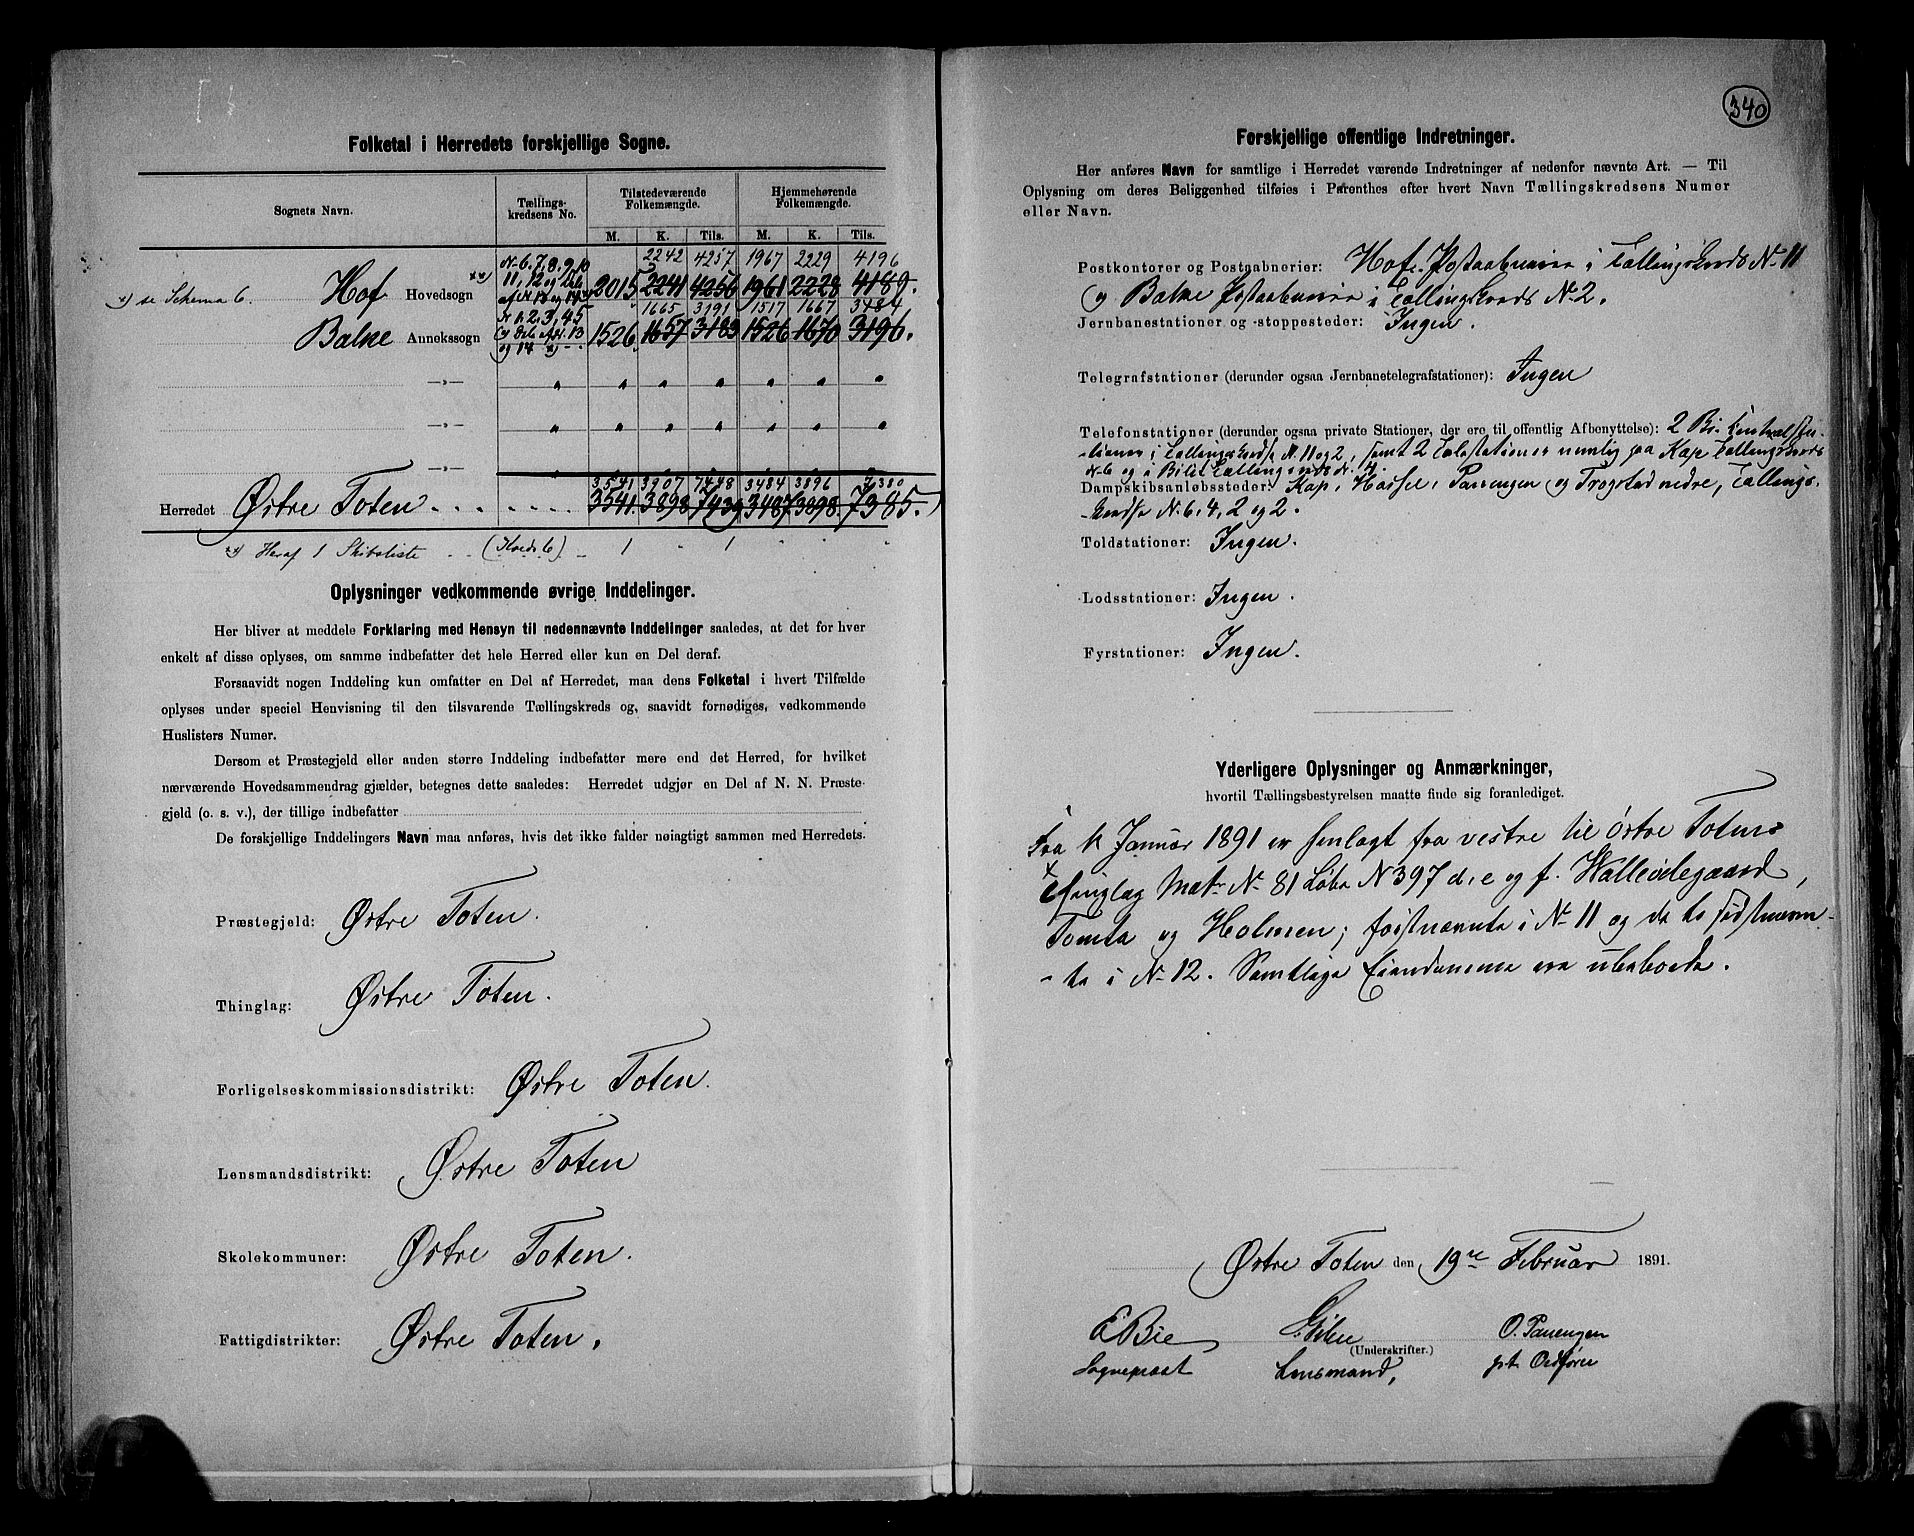 Folketal i Herredets forskjellige Sogne.
Sognets Navn. Tællings- kredsens No. Tilstedeværende Folkemængde. Hjemmehørende Folkemængde.
M. K. Tils. M. K. Tils.
2242 4257 1967 2229 4196
*) se Schema 6. Hof Hovedsogn **) N. 6, 7, 8, 9, 10 2015 2241 4256 1961 2228 4189.
11, 12 og Del
af N. 13 og 14 *)
1665 3191 1517 1667 3484
Balke Annekssogn N. 1, 2, 3, 4, 5 1526 1657 3183 1526 1670 3196.
og Del af N. 13
og 14 *)
—»— " " " " " " "
—»— " " " " " " "
—»—
3541 3907 7448 3484 3896 7380
Herredet Østre Toten 3541 3898 7439 3487 3898 7385.
**) Heraf 1 Skibsliste (Kreds 6) 1 " 1 " " "
Oplysninger vedkommende øvrige Inddelinger.
Her bliver at meddele Forklaring med Hensyn til nedennævnte Inddelinger saaledes, at det for hver
enkelt af disse oplyses, om samme indbefatter det hele Herred eller kun en Del deraf.
Forsaavidt nogen Inddeling kun omfatter en Del af Herredet, maa dens Folketal i hvert Tilfælde
oplyses under speciel Henvisning til den tilsvarende Tællingskreds og, saavidt fornødiges, vedkommende
Huslisters Numer.
Dersom et Præstegjeld eller anden større Inddeling indbefatter mere end det Herred, for hvilket
nærværende Hovedsammendrag gjælder, betegnes dette saaledes: Herredet udgjør en Del af N. N. Præste-
gjeld (o. s. v.), der tillige indbefatter
De forskjellige Inddelingers Navn maa anføres, hvis det ikke falder nøiagtigt sammen med Herredets.
Præstegjeld: Østre Toten.
Thinglag: Østre Toten.
Forligelseskommissionsdistrikt: Østre Toten.
Lensmandsdistrikt: Østre Toten
Skolekommuner: Østre Toten.
Fattigdistrikter: Østre Toten.
340
Forskjellige offentlige Indretninger.
Her anføres Navn for samtlige i Herredet værende Indretninger af nedenfor nævnte Art. — Til
Oplysning om deres Beliggenhed tilføies i Parenthes efter hvert Navn Tællingskredsens Numer
eller Navn.
Postkontorer og Postaabnerier: Hofs Postaabneri i Tællingskreds N. 11
og Balke Postaabneri i Tællingskreds N. 2.
Jernbanestationer og -stoppesteder: Ingen.
Telegrafstationer (derunder ogsaa Jernbanetelegrafstationer): Ingen
Telefonstationer (derunder ogsaa private Stationer, der ere til offentlig Afbenyttelse): 2 Bi-Centralsta-
tioner i Tællingskredse N. 11 og 2, samt 2 Talestationer nemlig paa Kap Tællingskreds
N. 6 og i Tællingskreds N.
Dampskibsanløbssteder: Kap, Hasle, Panengen og Trogstad nedre, Tællings-
kredse N. 6, 4, 2 og 2.
Toldstationer: Ingen.
Lodsstationer: Ingen.
Fyrstationer: Ingen.
Yderligere Oplysninger og Anmærkninger,
hvortil Tællingsbestyrelsen maatte finde sig foranlediget.
Fra 1. Januar 1891 er henlagt fra vestre til østre Totens
Thinglag Matr. N. 81 Løbe N 397 d, e og f. Walleødegaard,
Tomta og Holmen; førstnævnte i N. 11 og de to sidstnævn-
-te i N. 12. Samtlige Eiendomme ere ubeboede.
Østre Toten den 19de Februar 1891.
E Bie O. Panengen
(Underskrifter.)
Sogneprest Lensmand, p.t. Ordfører